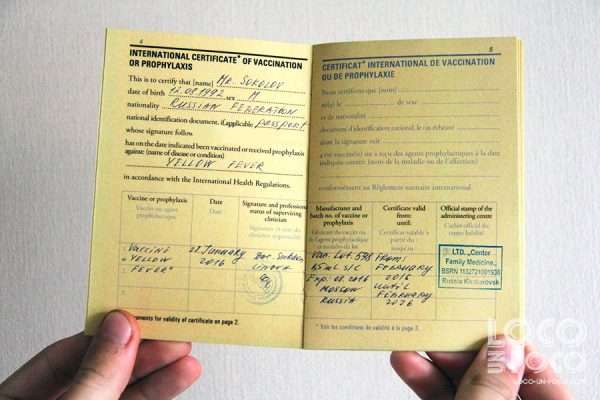 4
INTERNATIONAL CERTIFICATE* OF VACCINATION
OR PROPHYLAXIS
This is to certify that [name] MR. SOKOLOV
date of birth 12.08.1992 sex M
nationality RUSSIAN FEDERATION
national identification document, if applicable PASSPORT
whose signature follow
has on the date indicated been vaccinated or received prophylaxis
against: (name of disease or condition)
YELLOW FEVER
in accordance with the International Health Regulations.
Vaccine or prophylaxis
Vaccin ou agent
prophylactique
Date
Date
Signature and professional
status of supervising
clinician
VACCINE
"YELLOW
FEVER"
22 January
2016
for validity of certificate on page 2.
CERTIFICAT* INTERNATIONAL DE VACCINATION
OU DE PROPHYLAXIE
Nous certifions que [nom]
né(e) le de sexe
et de nationalité
document d'identification national, le cas échéant
dont la signature suit
a été vacciné(e) ou a reçu des agents prophylactiques à la date
indiquée contre: (nom de la maladie ou de l'affection)
conformément au Règlement sanitaire international.
Manufacturer and
batch no. of vaccine or
prophylaxis
Fabricant du vaccin ou
de l'agent prophylactique
et numéro du lot
Certificate valid
from:
until:
Certificat valable
à partir du:
jusqu'au:
Official stamp of the
administering centre
Cachet officiel du
centre habilité
Vac. Lot. 598
0.5 ml s/c
Exp: 08.2016
Moscow
Russia
From:
FEBRUARY
2016
until
FEBRUARY
2026
LTD. „Center
Family Medicine„
BSRN 1532721001938
Russia Khabarovsk
* Voir les conditions de validité à la page 3.
LOCO
UN
LOCO